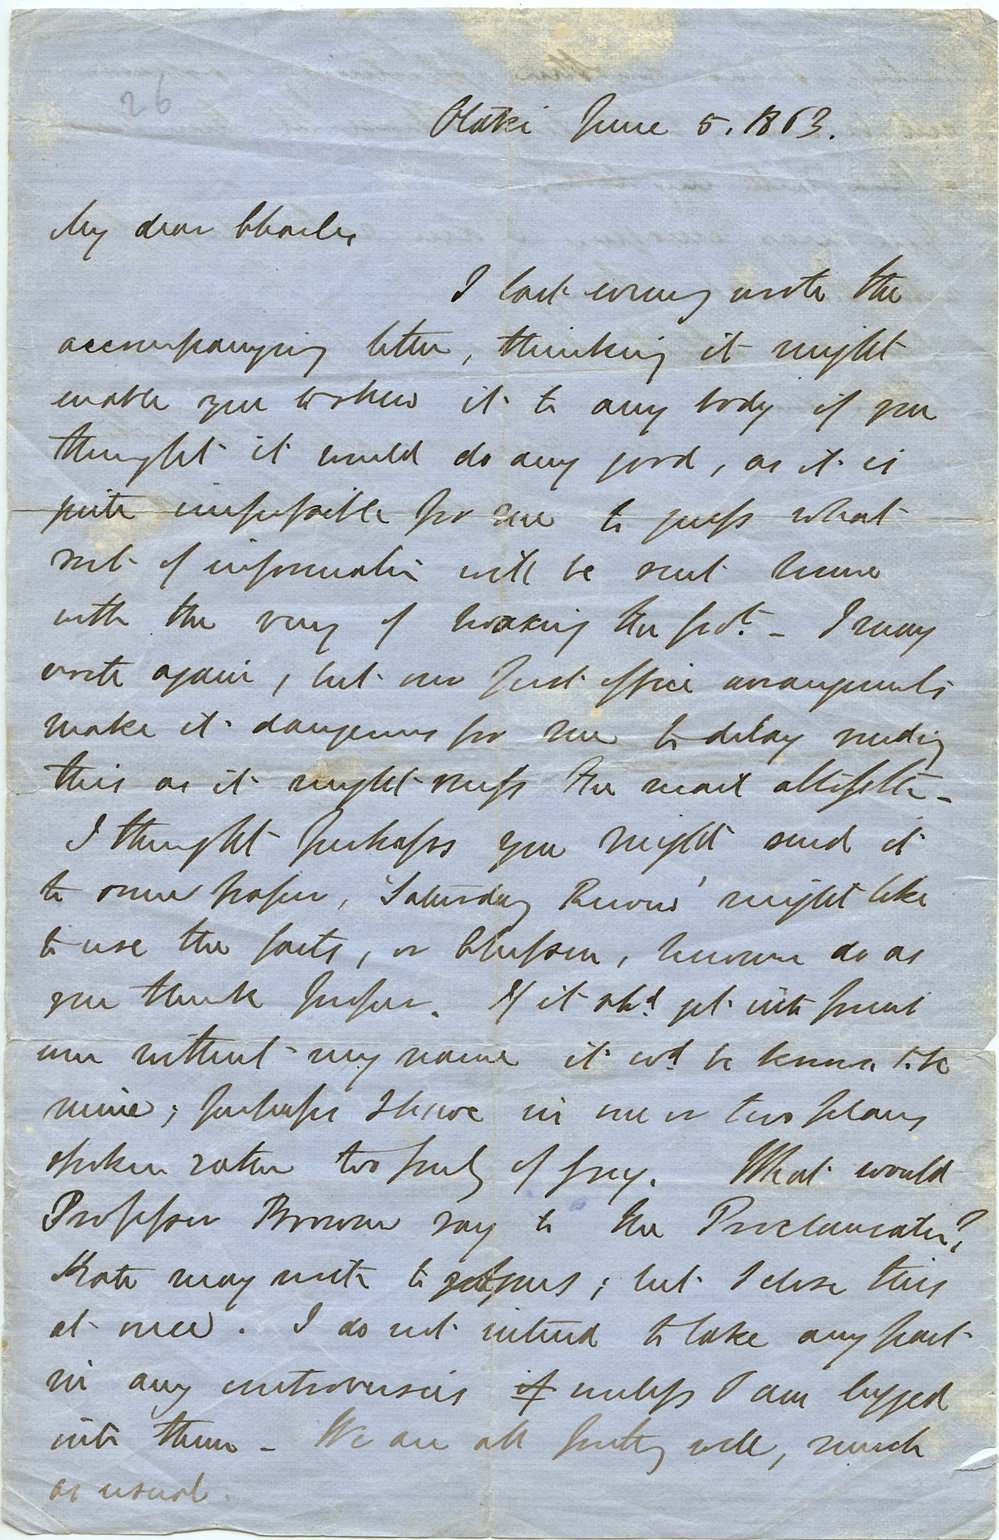 26
Otaki June 5. 1863.
My dear Charles,
I last evening wrote the
accompanying letter, thinking it might
enable you to shew it to any body if you
thought it would do any good, as it is
quite impossible for me to guess what
sort of information will be sent home
with the view of hoaxing the pub.
I may
write again, but our Post office arrangements
make it dangerous for me to delay sending
this as it might miss the mail altogether -
I thought perhaps you might send it
to some paper, 'Saturday Review' might like
to use the facts, or however do as
you think proper. If it shd. get into print
even without my name it wd. be known to be
mine; perhaps I have in one or two places
spoken rather too freely of Grey. What would
Professor Browne say to the Proclamation?
Kate may write to ; but I close this
at once. I do not intend to take any part
in any controversies if unless I am lugged
into them - We are all pretty well, much
as usual.